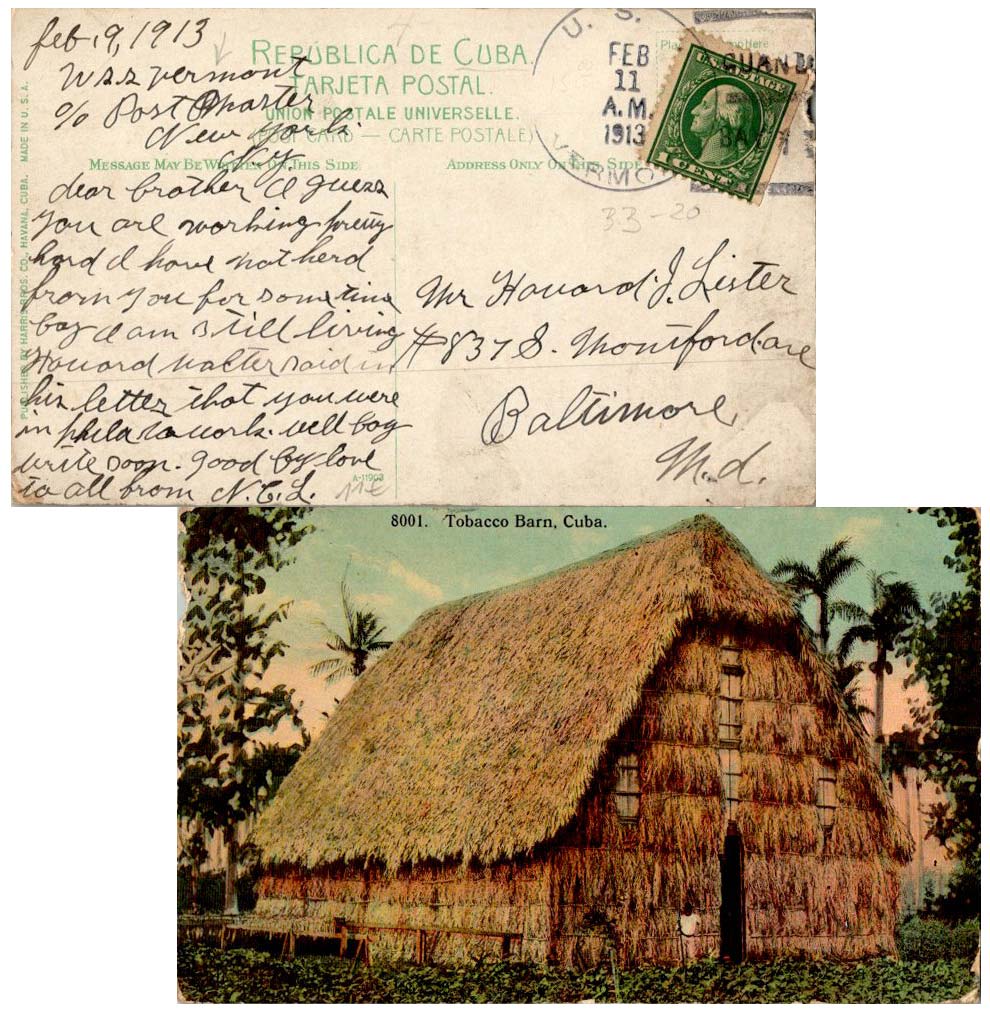 feb. 9, 1913
Uss Vermont
c/o Post Master
New York.
N.Y.
REPÚBLICA DE CUBA.
TARJETA POSTAL.
UNION POSTALE UNIVERSELLE.
(POST CARD — CARTE POSTALE)
MESSAGE MAY BE WRITTEN ON THIS SIDE
ADDRESS ONLY ON THIS SIDE
dear brother I guess
you are working pretty
hard I have not herd
from you for sometime
boy I am still living
Howard walter said in
his letter that you were
in phila to work. well boy
write soon. good by love
to all from N.C.L.
A-11903
11€
PUBLISHED BY HARRIS BROS. CO., HAVANA, CUBA. MADE IN U.S.A.
U. S.
FEB
11
A.M.
1913
VERMO
GUAN
BAY
U.S. POSTAGE
1 CENT 1
33-20
Mr Howard J. Lister
#837 S. Montford. ave
Baltimore
M.d.
8001. Tobacco Barn, Cuba.